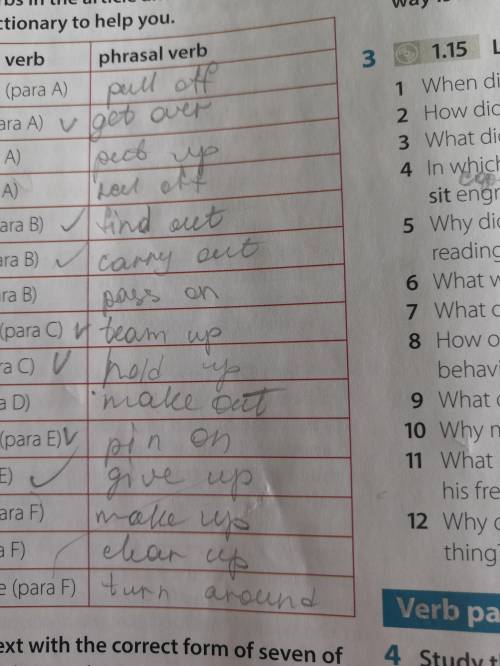 ctionary to help you.
verb phrasal verb
(para A) pull off
ara A) ✓ get over
A) up
A) off
para B) ✓ find out
ara B) ✓ carry out
ara B) pass on
(para C) ✓ team up
ra C) ✓ hold up
a D) make out
(para E) ✓ pin on
E) ✓ give up
ara F) make up
a F) clear up
e (para F) turn around
ext with the correct form of seven of
3 1.15 L
1 When di
2 How did
3 What di
4 In which
sit engr
5 Why did
reading
6 What w
7 What c
8 How o
behavi
9 What c
10 Why n
11 What
his fre
12 Why c
thing?
Verb pa
4 Study th